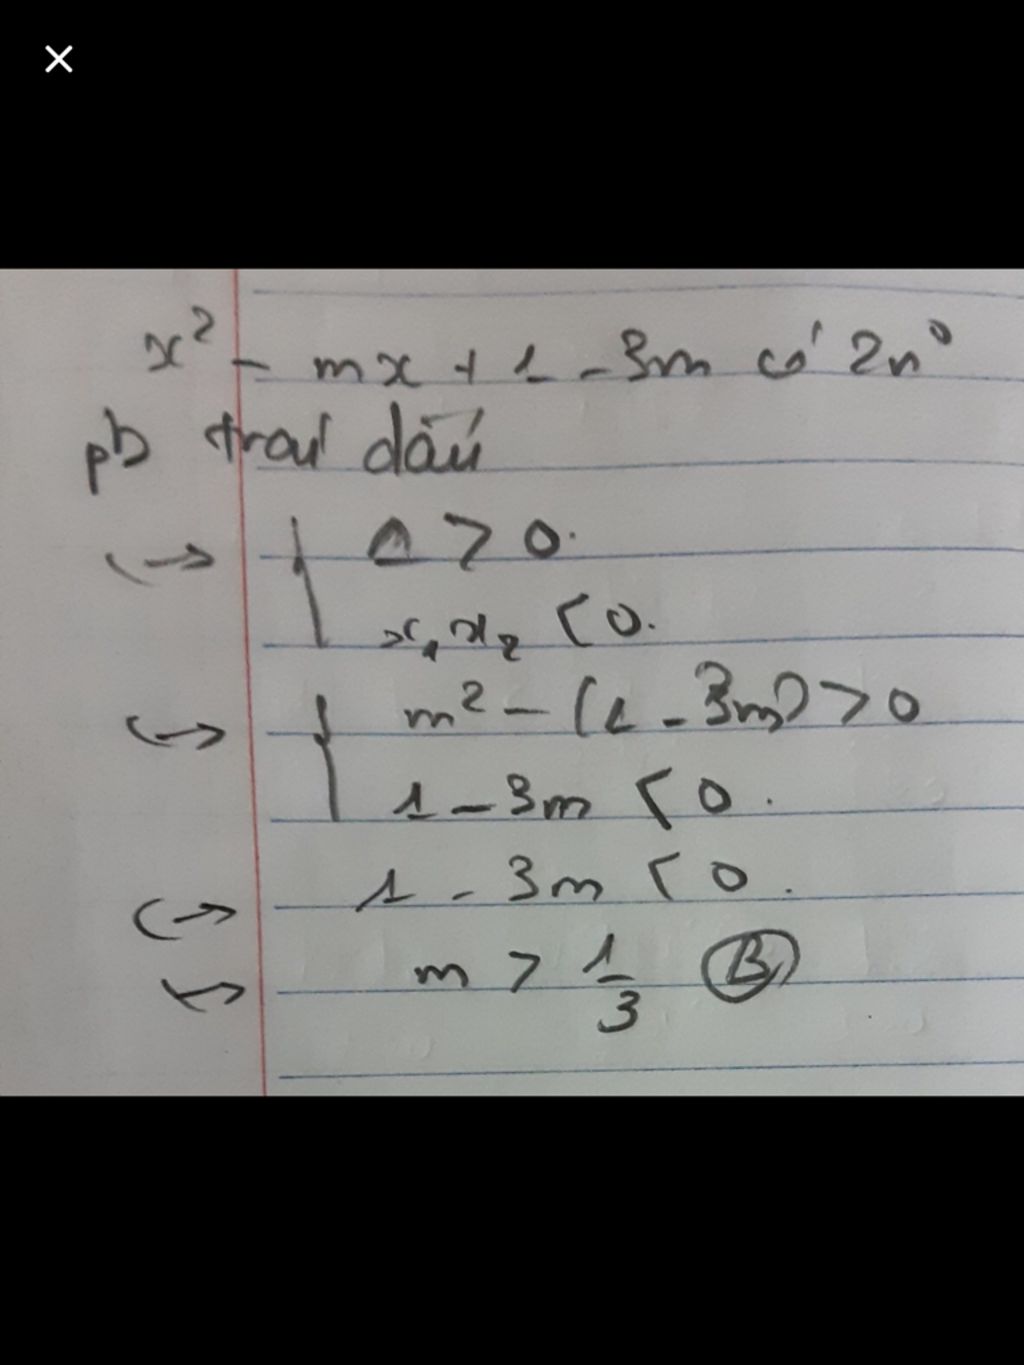 x² - mx + 1 - 3m có 2n⁰
pb trái dấu
↔ { Δ > 0.
x₁x₂ < 0.
↔ { m² - (1 - 3m) > 0
1 - 3m < 0.
↔ 1 - 3m < 0.
↔ m > 1/3 Ⓑ